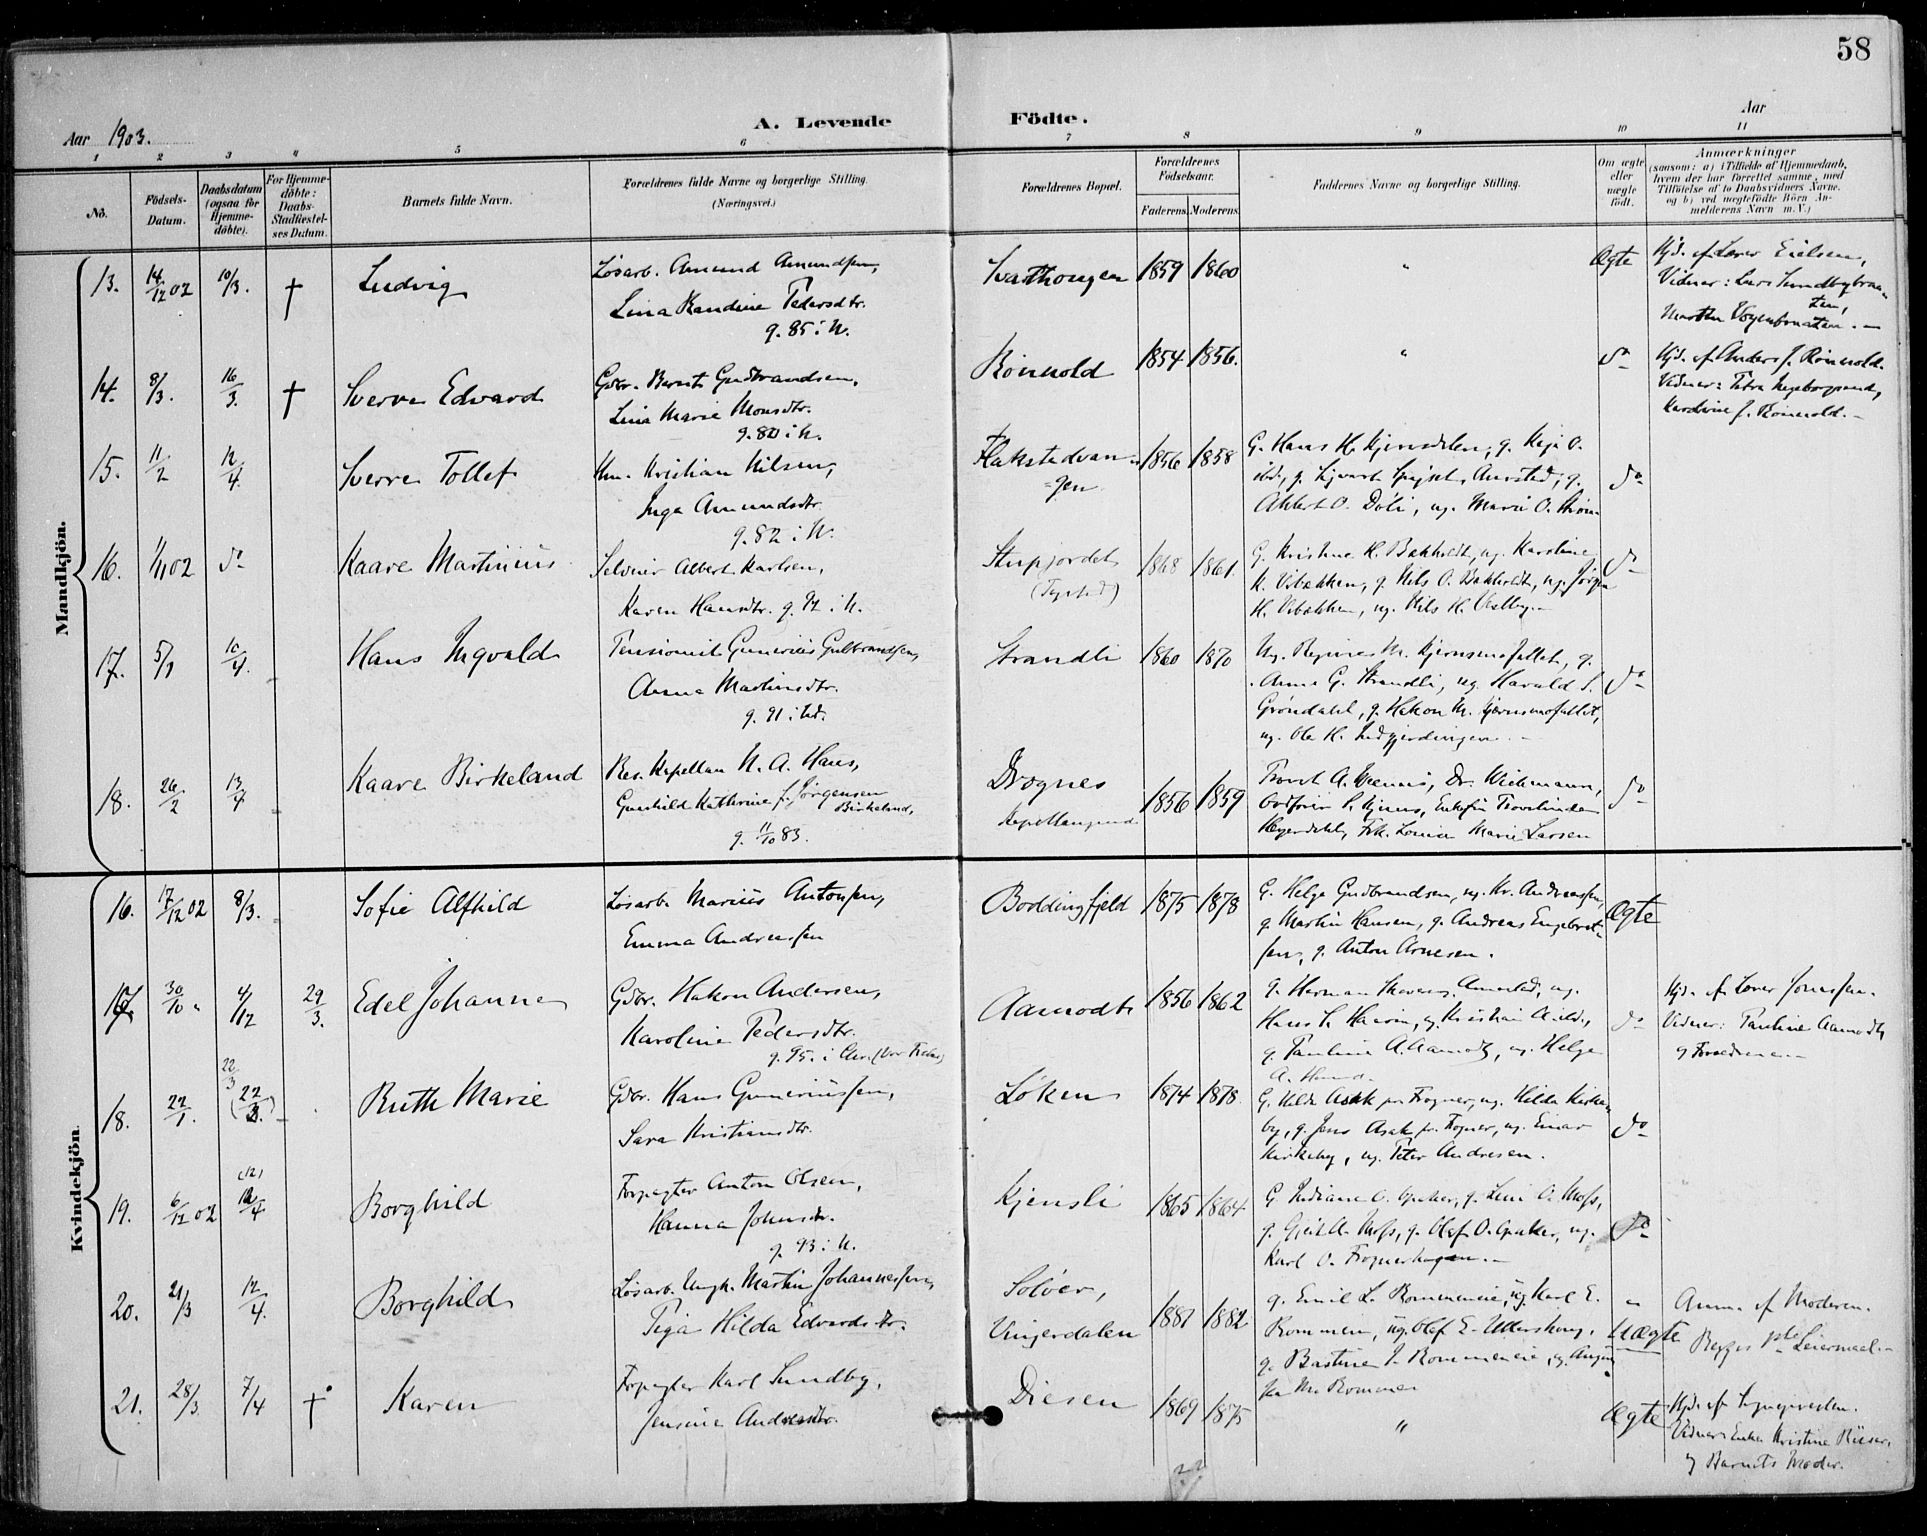 58
Aar 1903.
A. Levende Födte.
Aar
1 2 3 4 5 6 7 8 9 10 11
No.
Födsels-Datum.
Daabsdatum (ogsaa for Hjemme-döbte).
For Hjemme-döbte: Daabs-Stadfæstel-ses Datum.
Barnets fulde Navn.
Forældrenes fulde Navne og borgerlige Stilling.
(Næringsvei.)
Forældrenes Bopæl.
Forældrenes Födselsaar.
Faderens. Moderens.
Faddernes Navne og borgerlige Stilling.
Om ægte eller uægte födt.
Anmærkninger
(saasom: a) i Tilfælde af Hjemmedaab,
hvem der har forrettet samme, med
Tilföielse af to Daabsvidners Navne.
og b) ved uægtefödte Börn An-
melderens Navn m. V.)
Mandkjön.
13. 14/12 02 10/3. † Ludvig
Løsarb. Amund Amundsen,
Lina Randine Pedersdtr.
g. 85 i N.
Svarthougen 1859 1860 " Ægte
Hjd. af Lærer Eielsen,
Vidner: Lars Sundbybraa-
ten,
14. 8/3. 16/3. † Sverre Edvard
Gbr. Bernt Gudbrandsen,
Lina Marie Monsdtr.
g. 80 i N.
Rönnold 1854 1856. " do
Hjd. af Anders J. Rönnold.
Vidner: Petra Ingeborgrud,
Karoline J. Rönnold.
15. 11/2 12/4. Sverre Tollef
Hm. Kristian Nilsen,
Inga Amundsdtr.
g. 82 i N.
Flakstadvan-
gen. 1856 1858
G. Hans H. Kjernsdalen, g. Kaja O.
ibd., g. Aurstad, g.
O. Døli, ug. Marie O.
do
16. 1/11 02 do Kaare Martinius
Selveier Albert Karlsen,
Karen Hansdtr. g. 92 i N.
1868 1861.
G. Kristine H. Bakholdt, ug. Karoline
H. Vibækken, g. Nils O. Bakholdt, ug. Jørgen
H. Vibækken, ug. Nils H. Vestby.
do
17. 5/1 10/4. Hans Ingvald
Pensionist Gunerius Gulbrandsen,
Anna Martinsdtr.
g. 91 i
Strandli 1860 1870
Ug. M. g.
Anne G. Strandli, ug. Harald S.
Gröndahl, g. Hakon M.
ug. Ole H.
do
18. 26/2 13/4 Kaare Birkeland
Res. Kapellan N. A. Hans,
Gunhild Kathrine f. Jörgensen
Birkeland,
g. 11/10 83.
Drognes
Kapellangaard 1856 1859
Provst A. Dr. Wichmann,
Enkefru Provstinde
Heyerdahl, Frk. Louise Marie Larsen
do
Kvindekjön.
16. 17/12 02 8/3. Sofie Alfhild
Løsarb. Marius Antonsen,
Emma Andreassen
Boddingfjeld 1875 1878
G. Helge Gudbrandsen, ug. Kr. Andreassen,
g. Martin Hansen, g. Andreas Engebret-
sen, g. Anton Arnesen.
Ægte
17. 30/10 " 4/12 29/3. Edel Johanne
Gbr. Hakon Andersen,
Karoline Pedersdtr.
g. 95. i Chra.
Aamodt 1856 1862
G. Herman Aurstad, ug.
Hans ug. Kristian
g. Pauline A. Aamodt, ug. Helge
do
Hjd. af Lærer Jonassen.
Vidner: Pauline Aamodt,
22/3
18. 22/1. (22/3.) Ruth Marie
Gbr. Hans Gunerius sen,
Sara Kristiansdtr.
Löken 1874 1878
G. Hilda Asak pr. Fogner, ug. Hilda Kirke-
by, g. Jens Asak pr. Fogner, ug. Einar
Kirkeby, ug. Peter Andresen.
do
(12)
19. 6/12 02 12/4 Borghild
Forpagter Anton Olsen,
Hanna Johnsdtr.
g. 93 i N.
Kjensli 1865 1864
G. O. Opaker, g. Lini O. Moss,
g. A. Moss, g. Olaf O. Opaker, ug.
Karl O. Fognerhagen.
do
20. 21/3 12/4. Borghild
Løsarb. Ungk. Martin Johannessen,
Pige Hilda Edvardsdtr.
Solöer,
Vingerdalen 1881 1882
g. Emil L. Rommeneie, ug. Karl E.
Rommen, ug. Olaf E.
g. Bastine J. Rommeneie, ug.
M. Rommen
"
Uægte
Anm. af Moderen.
Leiermaal.
21. 28/3 7/4 † Karen
Forpagter Karl Sundby,
Jensine Andersdtr.
Diesen 1869 1875 " Ægte
Hjd. af
Vidner: Enke Kristine
og Barnets Moder.